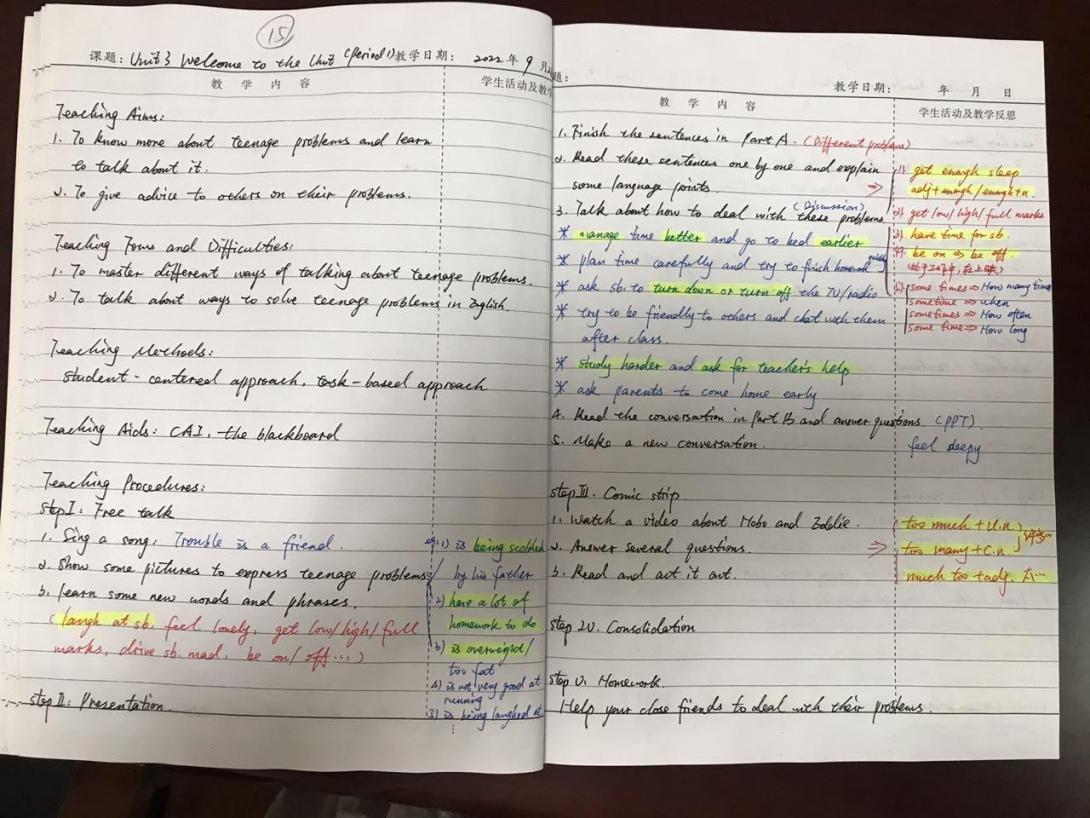 15
课题: Unit 3 Welcome to the Unit (Period 1) 教学日期: 2022年9月
教 学 内 容
学生活动及教学
Teaching Aims:
1. To know more about teenage problems and learn
to talk about it.
2. To give advice to others on their problems.
Teaching Focus and Difficulties:
1. To master different ways of talking about teenage problems.
2. To talk about ways to solve teenage problems in English.
Teaching Methods:
student-centered approach, task-based approach
Teaching Aids: CAI, the blackboard
Teaching Procedures:
Step I: Free talk
1. Sing a song: Trouble is a friend.
2. Show some pictures to express teenage problems
3. learn some new words and phrases.
(laugh at sb. feel lonely, get low/high/full
marks, drive sb. mad, be on/off...)
Step II: Presentation
eg: 1) is being scolded
by his father
2) have a lot of
homework to do
3) is overweight/
too fat
4) is not very good at
running
5) is being laughed at
题:
教学日期: 年 月 日
教 学 内 容
学生活动及教学反思
1. Finish the sentences in Part A. (Different problems)
2. Read these sentences one by one and explain
some language points.
3. Talk about how to deal with these problems (Discussion)
* manage time better and go to bed earlier
* plan time carefully and try to finish homework
* ask sb. to turn down or turn off the TV/radio
* try to be friendly to others and chat with them
after class.
* study harder and ask for teacher's help
* ask parents to come home early
4. Read the conversation in Part B and answer questions. (PPT)
5. Make a new conversation.
1) get enough sleep
adj+enough/enough+n.
2) get low/high/full marks
3) have time for sb.
4) be on ⇒ be off.
5) some times ⇒ How many times
sometime ⇒ when
sometimes ⇒ How often
some time ⇒ How long
feel sleepy
Step III. Comic strip.
1. Watch a video about Hobo and Eddie.
2. Answer several questions.
3. Read and act it out.
too much + U.n.
too many + C.n.
much too + adj. 太...
Step IV. Consolidation
Step V. Homework.
Help your close friends to deal with their problems.